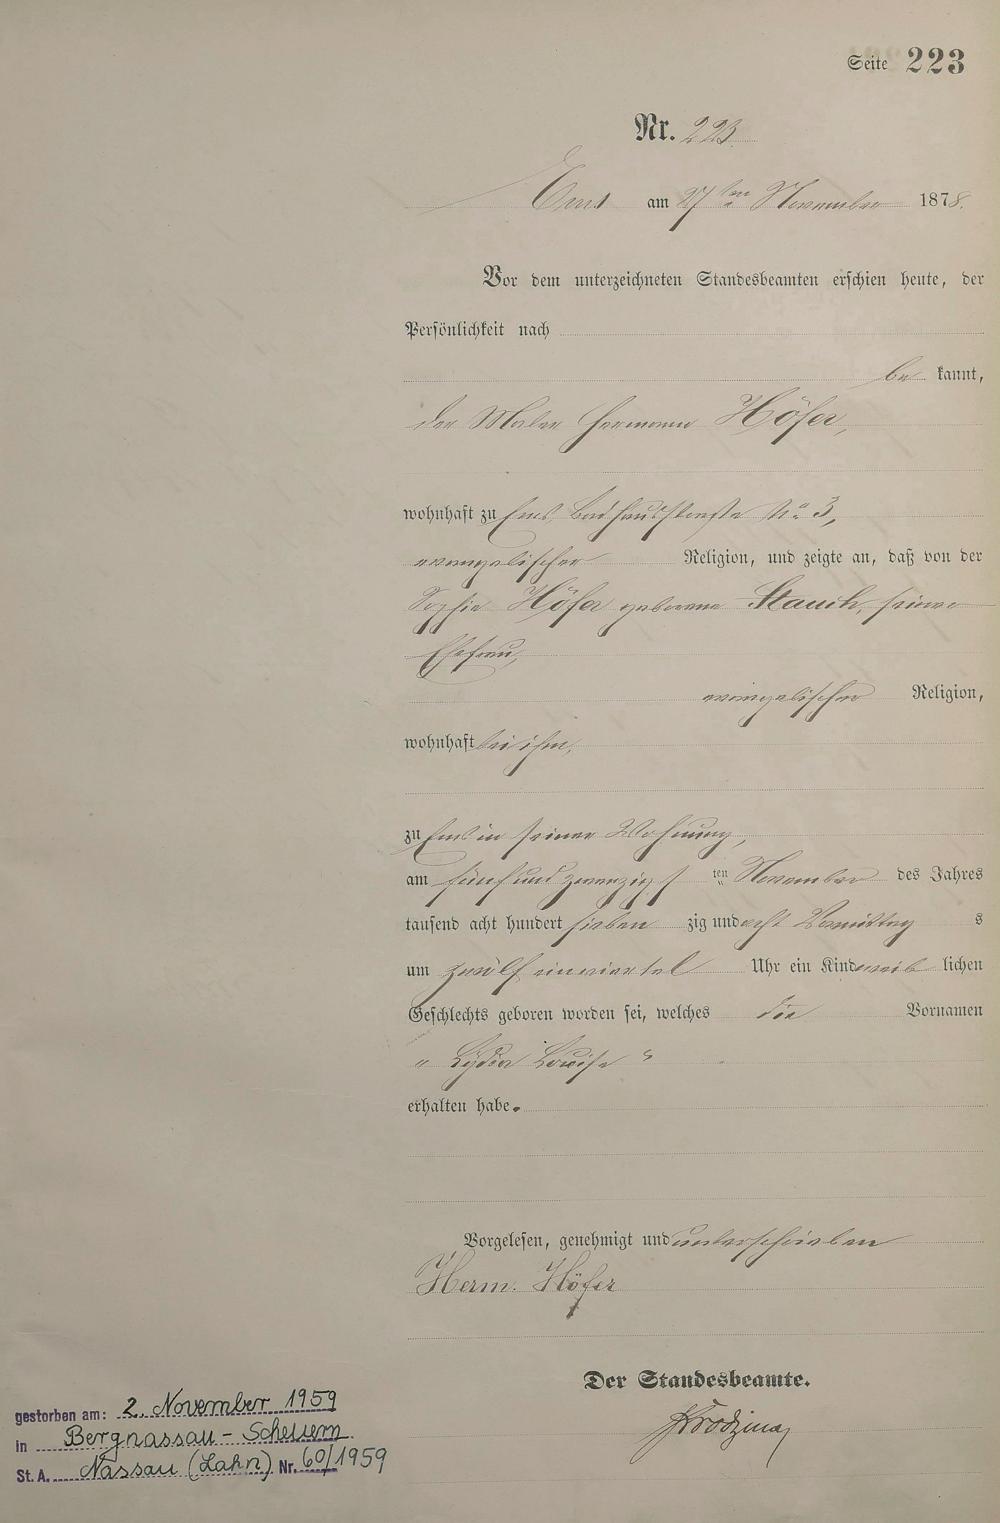 Seite 223
Nr. 223.
Ems am 27ten November 1878.
Vor dem unterzeichneten Standesbeamten erschien heute, der
Persönlichkeit nach
be kannt,
der Maler Hermann Höfer,
wohnhaft zu Ems, Badhausstraße No 3,
evangelischer Religion, und zeigte an, daß von der
Sophie Höfer geborene Stauch, seiner
Ehefrau,
evangelischer Religion,
wohnhaft bei ihm,
zu Ems in seiner Wohnung,
am fünf und zwanzigs ten November des Jahres
tausend acht hundert sieben zig und acht Vormittag s
um zwölf einviertel Uhr ein Kind weib lichen
Geschlechts geboren worden sei, welches die Vornamen
„ Lydia Louise "
erhalten habe.
Vorgelesen, genehmigt und unterschrieben
Herm. Höfer
Der Standesbeamte.
gestorben am: 2. November 1959
in Bergnassau - Scheuern
St. A. Nassau (Lahn) Nr. 60/1959